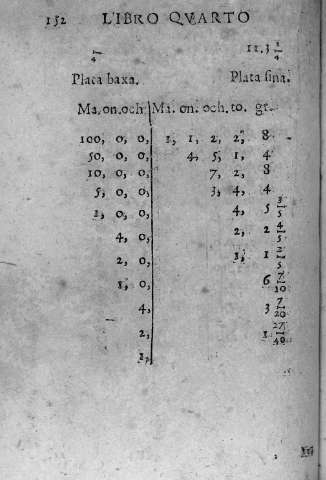 152 L'IBRO QVARTO
1/4 11. 3 1/4
Plata baxa. Plata fina.
Ma. on. och Ma. on. och. to. gr.
100, 0, 0, 1, 1, 2, 2, 8
50, 0, 0, 4, 5, 1, 4
10, 0, 0, 7, 2, 8
5, 0, 0, 3, 4, 4
1, 0, 0, 4, 5 3/5
4, 0, 2, 2 4/5
2, 0, 1, 1 2/5
1, 0, 6 7/10
4, 3 7/20
2, 1 27/40
1,